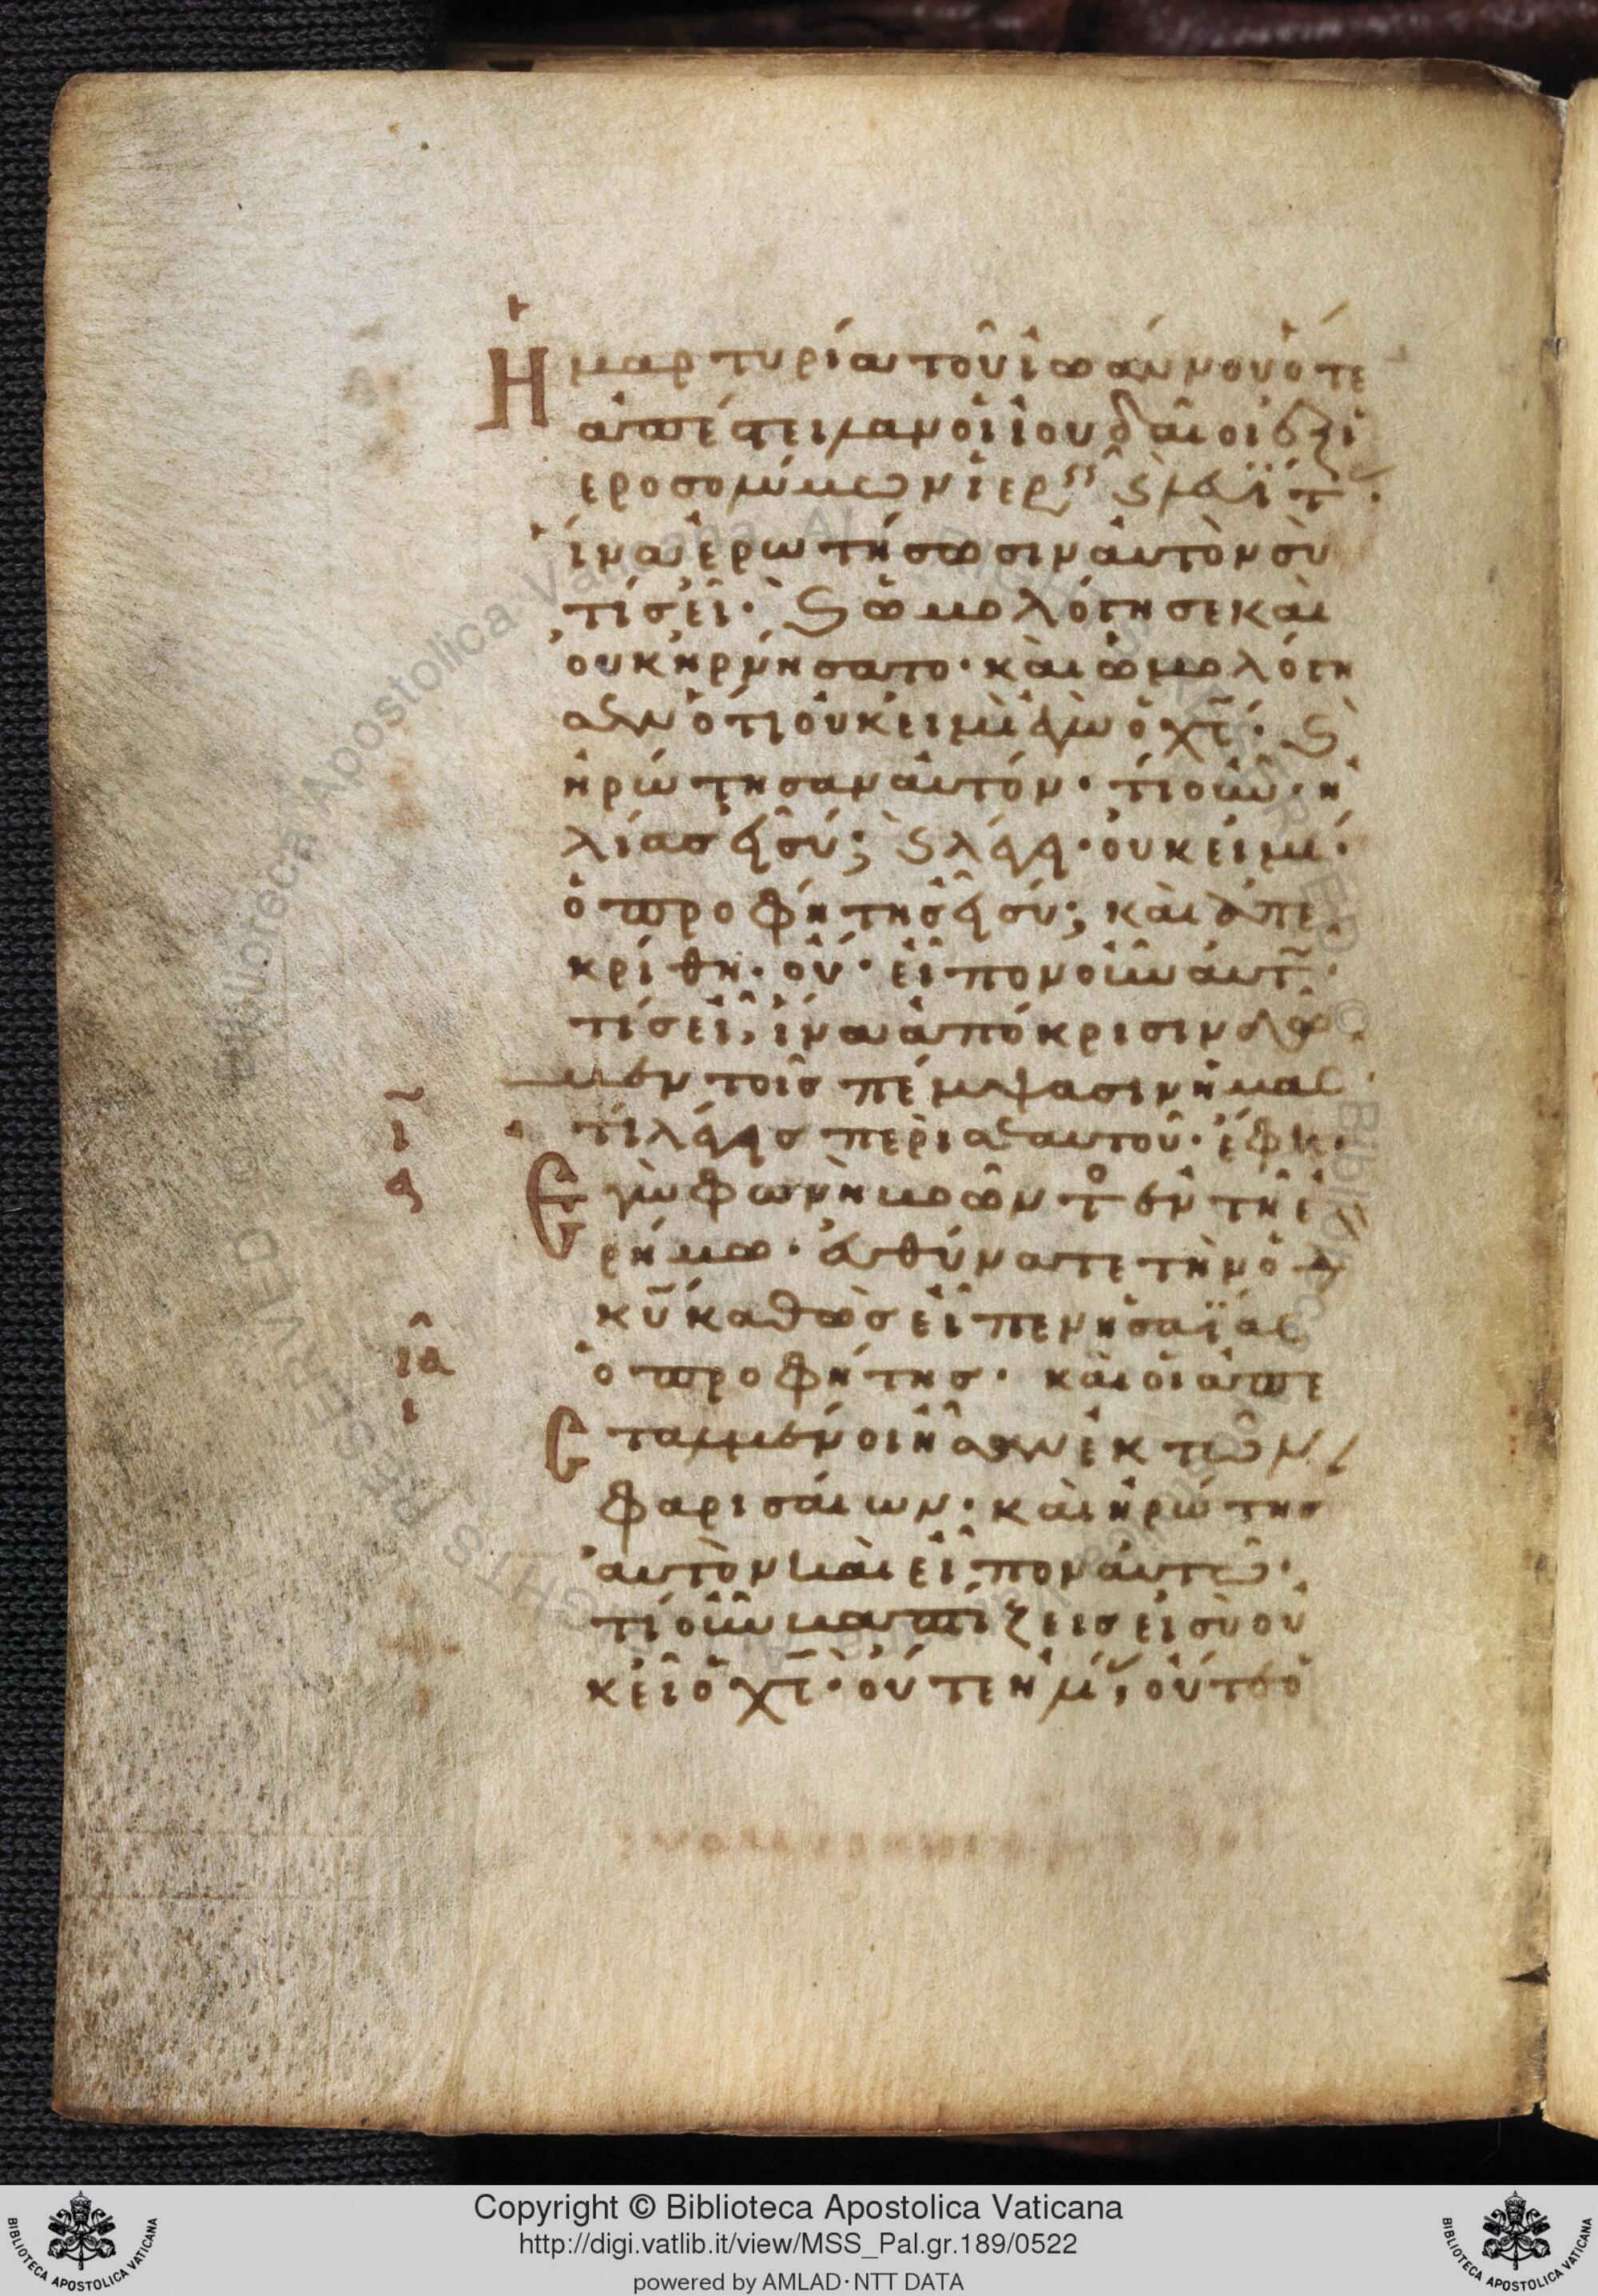 Ἡ μαρτυρία τοῦ ἰωάννου ὅτε
ἀπέστειλαν οἱ ἰουδαῖοι ἐξ ἱ
εροσολύμων ἱερ ϗ λευΐτ·
ἵνα ἐρωτήσωσιν αὐτὸν σὺ
τίς εἶ· ϗ ὡμολόγησε καὶ
οὐκ ἠρνήσατο· καὶ ὡμολόγη
σεν ὅτι οὐκ εἰμὶ ἐγὼ ὁ χς· ϗ
ἠρώτησαν αὐτόν· τί οὖν· ἠ
λίας εἶ σύ; ϗ λέγει· οὐκ εἰμί·
ὁ προφήτης εἶ σύ; καὶ ἀπε
κρίθη· οὔ· εἶπον οὖν αὐτ·
τίς εἶ, ἵνα ἀπόκρισιν δῶ
μεν τοῖς πέμψασιν ἡμᾶς·
τί λέγεις περὶ σεαυτοῦ· ἔφη·
ι
Ἐγὼ φωνὴ βοῶντο ἐν τῇ ἐ
ρήμω· εὐθύνατε τὴν ὁδ
κυ καθὼς εἶπεν ἠσαΐας
ια
ι
ὁ προφήτης· καὶ οἱ ἀπε
σταλμένοι ἦσαν ἐκ τῶν
φαρισαίων· καὶ ἠρώτησ
αὐτὸν καὶ εἶπον αὐτῶ·
τί οὖν βαπτίζεις εἰ σὺ οὐ
κ εἶ ὁ χς· οὔτε ἠλ, οὔτε ὁ
Copyright © Biblioteca Apostolica Vaticana
http://digi.vatlib.it/view/MSS_Pal.gr.189/0522
powered by AMLAD·NTT DATA
BIBLIOTECA APOSTOLICA VATICANA
BIBLIOTECA APOSTOLICA VATICANA